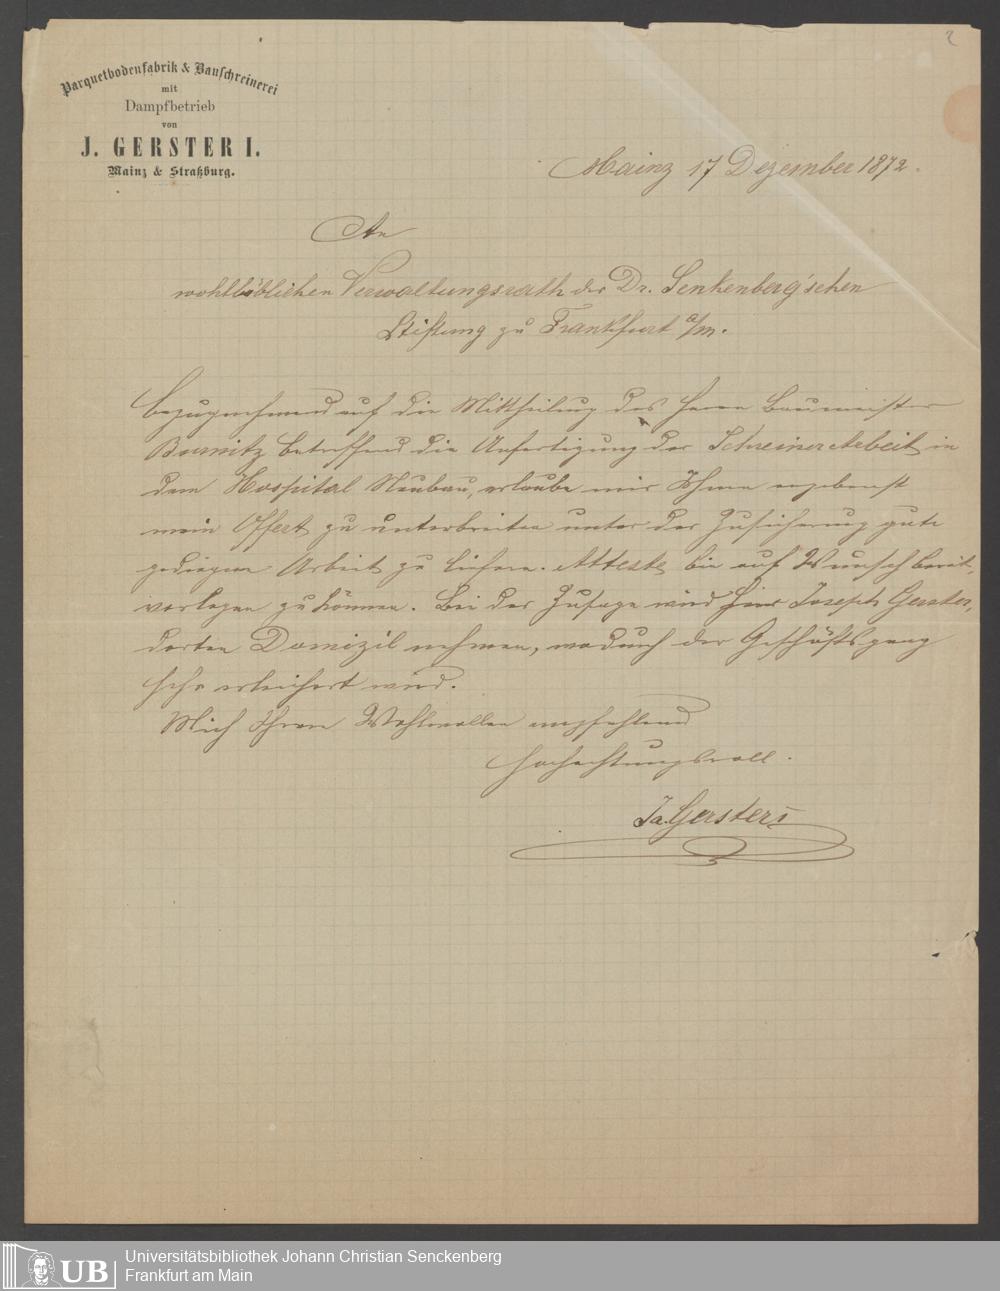 2
Parquetbodenfabrik & Bauschreinerei
mit
Dampfbetrieb
von
J. GERSTER I.
Mainz & Straßburg.
Mainz 17 Dezember 1872.
An
wohllöblichen Verwaltungsrath der Dr. Senkenberg'schen
Stiftung zu Frankfurt a/m.
Bezugnehmend auf die Mittheilung des Herrn Baumeister
Burnitz betreffend die Anfertigung der Schreiner Arbeit in
dem Hospital Neubau, erlaube mir Ihnen ergebenst
mein Offert zu unterbreiten unter der Zusicherung gute
gediegene Arbeit zu liefern. Atteste bin auf Wunsch bereit,
vorlegen zu können. Bei der Zusage wird Joseph Gerster,
dorten Domizil nehmen, wodurch der Geschäftsgang
sehr erleichert wird.
Mich Ihrem Wohlwollen empfehlend
Hochachtungsvoll.
Ja. Gerster I
UB
Universitätsbibliothek Johann Christian Senckenberg
Frankfurt am Main